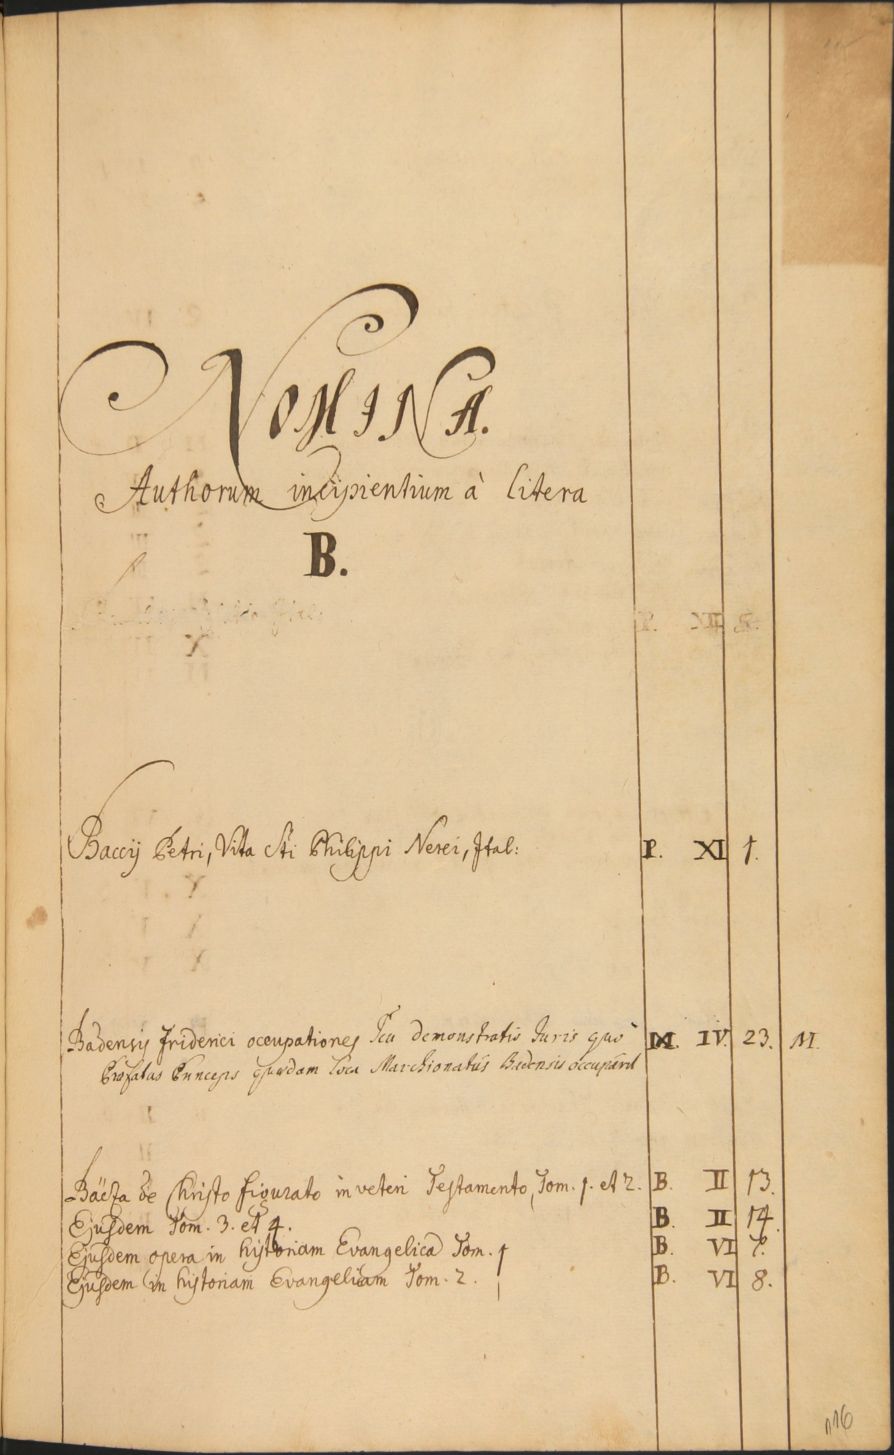 NOMINA.
Authorum incipientium à litera
B.
P. XII
Baccij Petri, Vita Sti Philippi Nerei, Ital: P. XI 1.
Badensis Friderici occupationes seu demonstratio Juris quo M. IV. 23. M.
Præfatus Princeps quædam loca Marchionatus Badensis occupavit
Baësa de Christo figurato in veteri Testamento, Tom. 1. et 2. B. II 13.
Ejusdem Tom. 3. et 4. B. II 14.
Ejusdem opera in historiam Evangelicam Tom. 1 B. VI 7.
Ejusdem in historiam Evangelicam Tom. 2. B. VI 8.
116